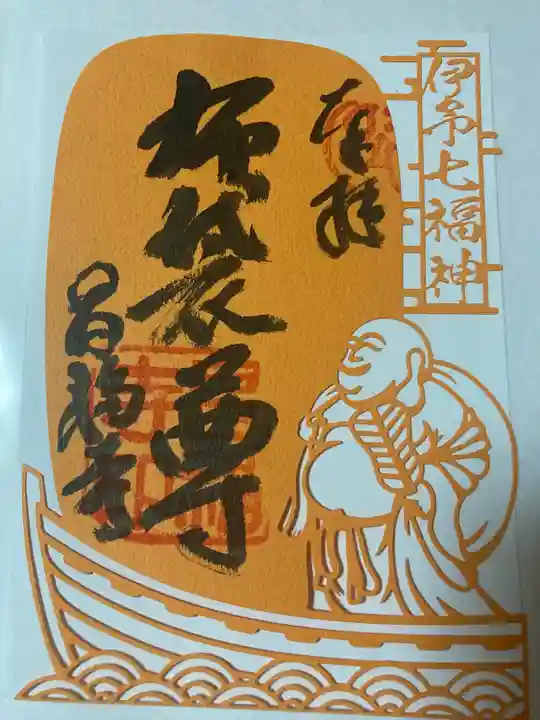 伊 七福神
奉拝
布袋尊
昌福寺